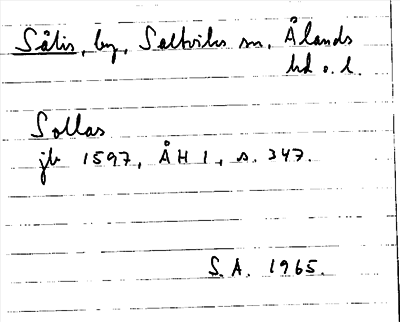 Sålis, by, Saltviks sn, Ålands
hd o. l.
Sollas
jb 1597, ÅH 1, s. 347.
S. A. 1965.